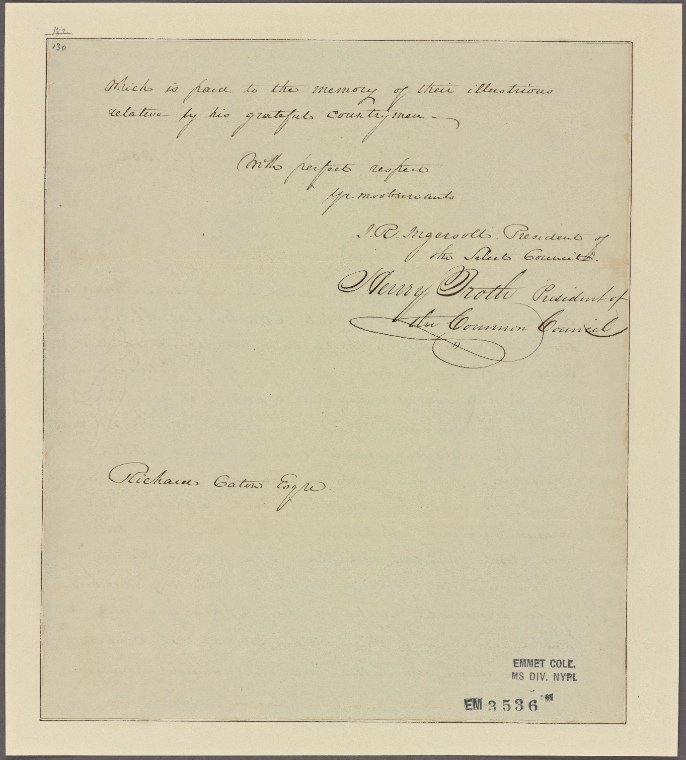 130
which is paid to the memory of their illustrious
relative by his grateful countrymen—
With perfect respect
Yr. mo observants
J. R. Ingersoll President of
the Select Council.
Henry Troth President of
the Common Council
Richard Caton Esqre
EMMET COLL.
MS DIV. NYPL
EM 3536